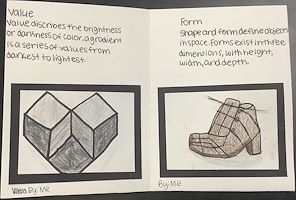 Value
Value discribes the brightness
or darkness of color. a gradient
is a series of values from
darkest to lightest.
By: Me
Form
Shape and form define objects
in space. Forms exist in three
dimensions, with height,
width, and depth.
By: Me